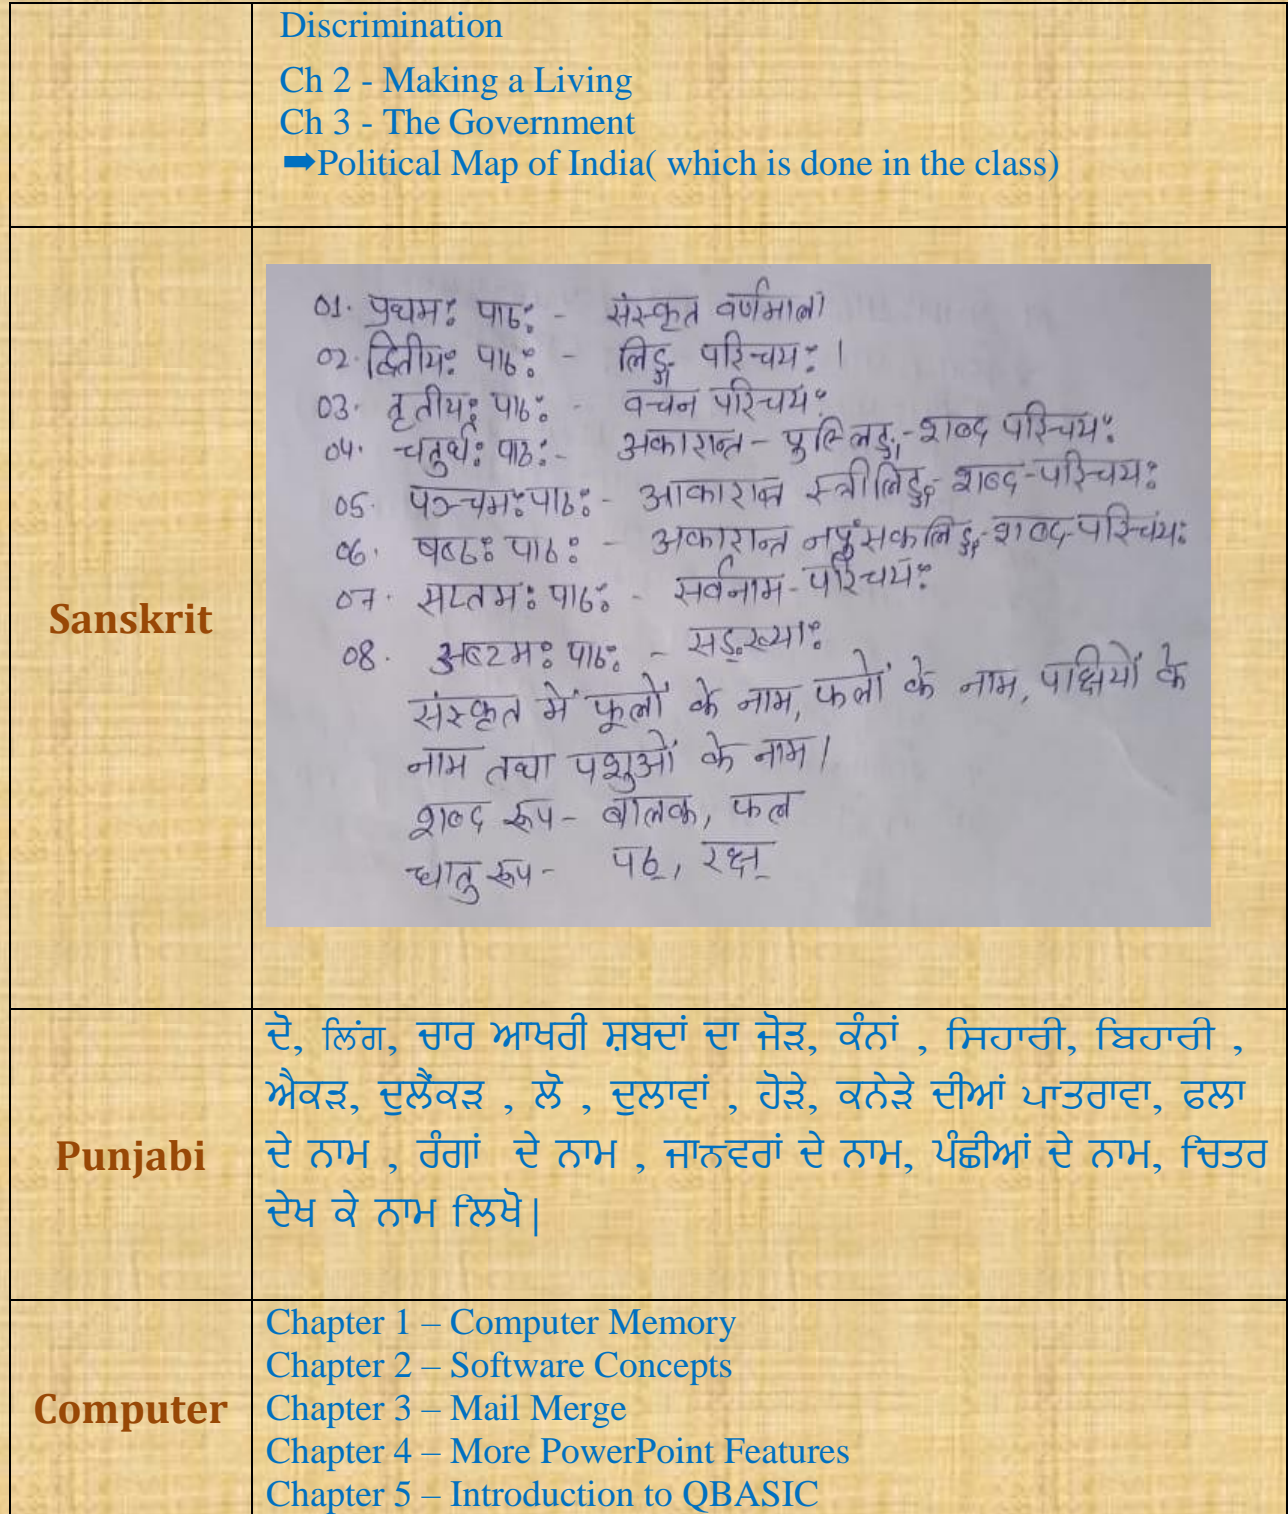 Discrimination
Ch 2 - Making a Living
Ch 3 - The Government
➡Political Map of India( which is done in the class)
Sanskrit
01. प्रथमः पाठः - संस्कृत वर्णमाला
02. द्वितीयः पाठः - लिङ्ग परिचयः ।
03. तृतीयः पाठः - वचन परिचयः
04. चतुर्थः पाठः - अकारान्त - पुल्लिङ्ग-शब्द परिचयः
05. पञ्चमः पाठः - आकारान्त स्त्रीलिङ्ग-शब्द-परिचयः
06. षष्ठः पाठः - अकारान्त नपुंसकलिङ्ग-शब्द-परिचयः
07. सप्तमः पाठः - सर्वनाम-परिचयः
08. अष्टमः पाठः - सङ्ख्याः
संस्कृत में फूलों के नाम, फलों के नाम, पक्षियों के
नाम तथा पशुओं के नाम।
शब्द रूप - बालक, फल
धातु रूप - पठ्, रक्ष्
Punjabi
ਦੋ, ਲਿੰਗ, ਚਾਰ ਆਖਰੀ ਸ਼ਬਦਾਂ ਦਾ ਜੋੜ, ਕੰਨਾਂ , ਸਿਹਾਰੀ, ਬਿਹਾਰੀ ,
ਐਕੜ, ਦੁਲੈਂਕੜ , ਲੋ , ਦੁਲਾਵਾਂ , ਹੋੜੇ, ਕਨੇੜੇ ਦੀਆਂ ਪਾਤਰਾਵਾ, ਫਲਾ
ਦੇ ਨਾਮ , ਰੰਗਾਂ ਦੇ ਨਾਮ , ਜਾਨਵਰਾਂ ਦੇ ਨਾਮ, ਪੰਛੀਆਂ ਦੇ ਨਾਮ, ਚਿਤਰ
ਦੇਖ ਕੇ ਨਾਮ ਲਿਖੋ|
Computer
Chapter 1 – Computer Memory
Chapter 2 – Software Concepts
Chapter 3 – Mail Merge
Chapter 4 – More PowerPoint Features
Chapter 5 – Introduction to QBASIC